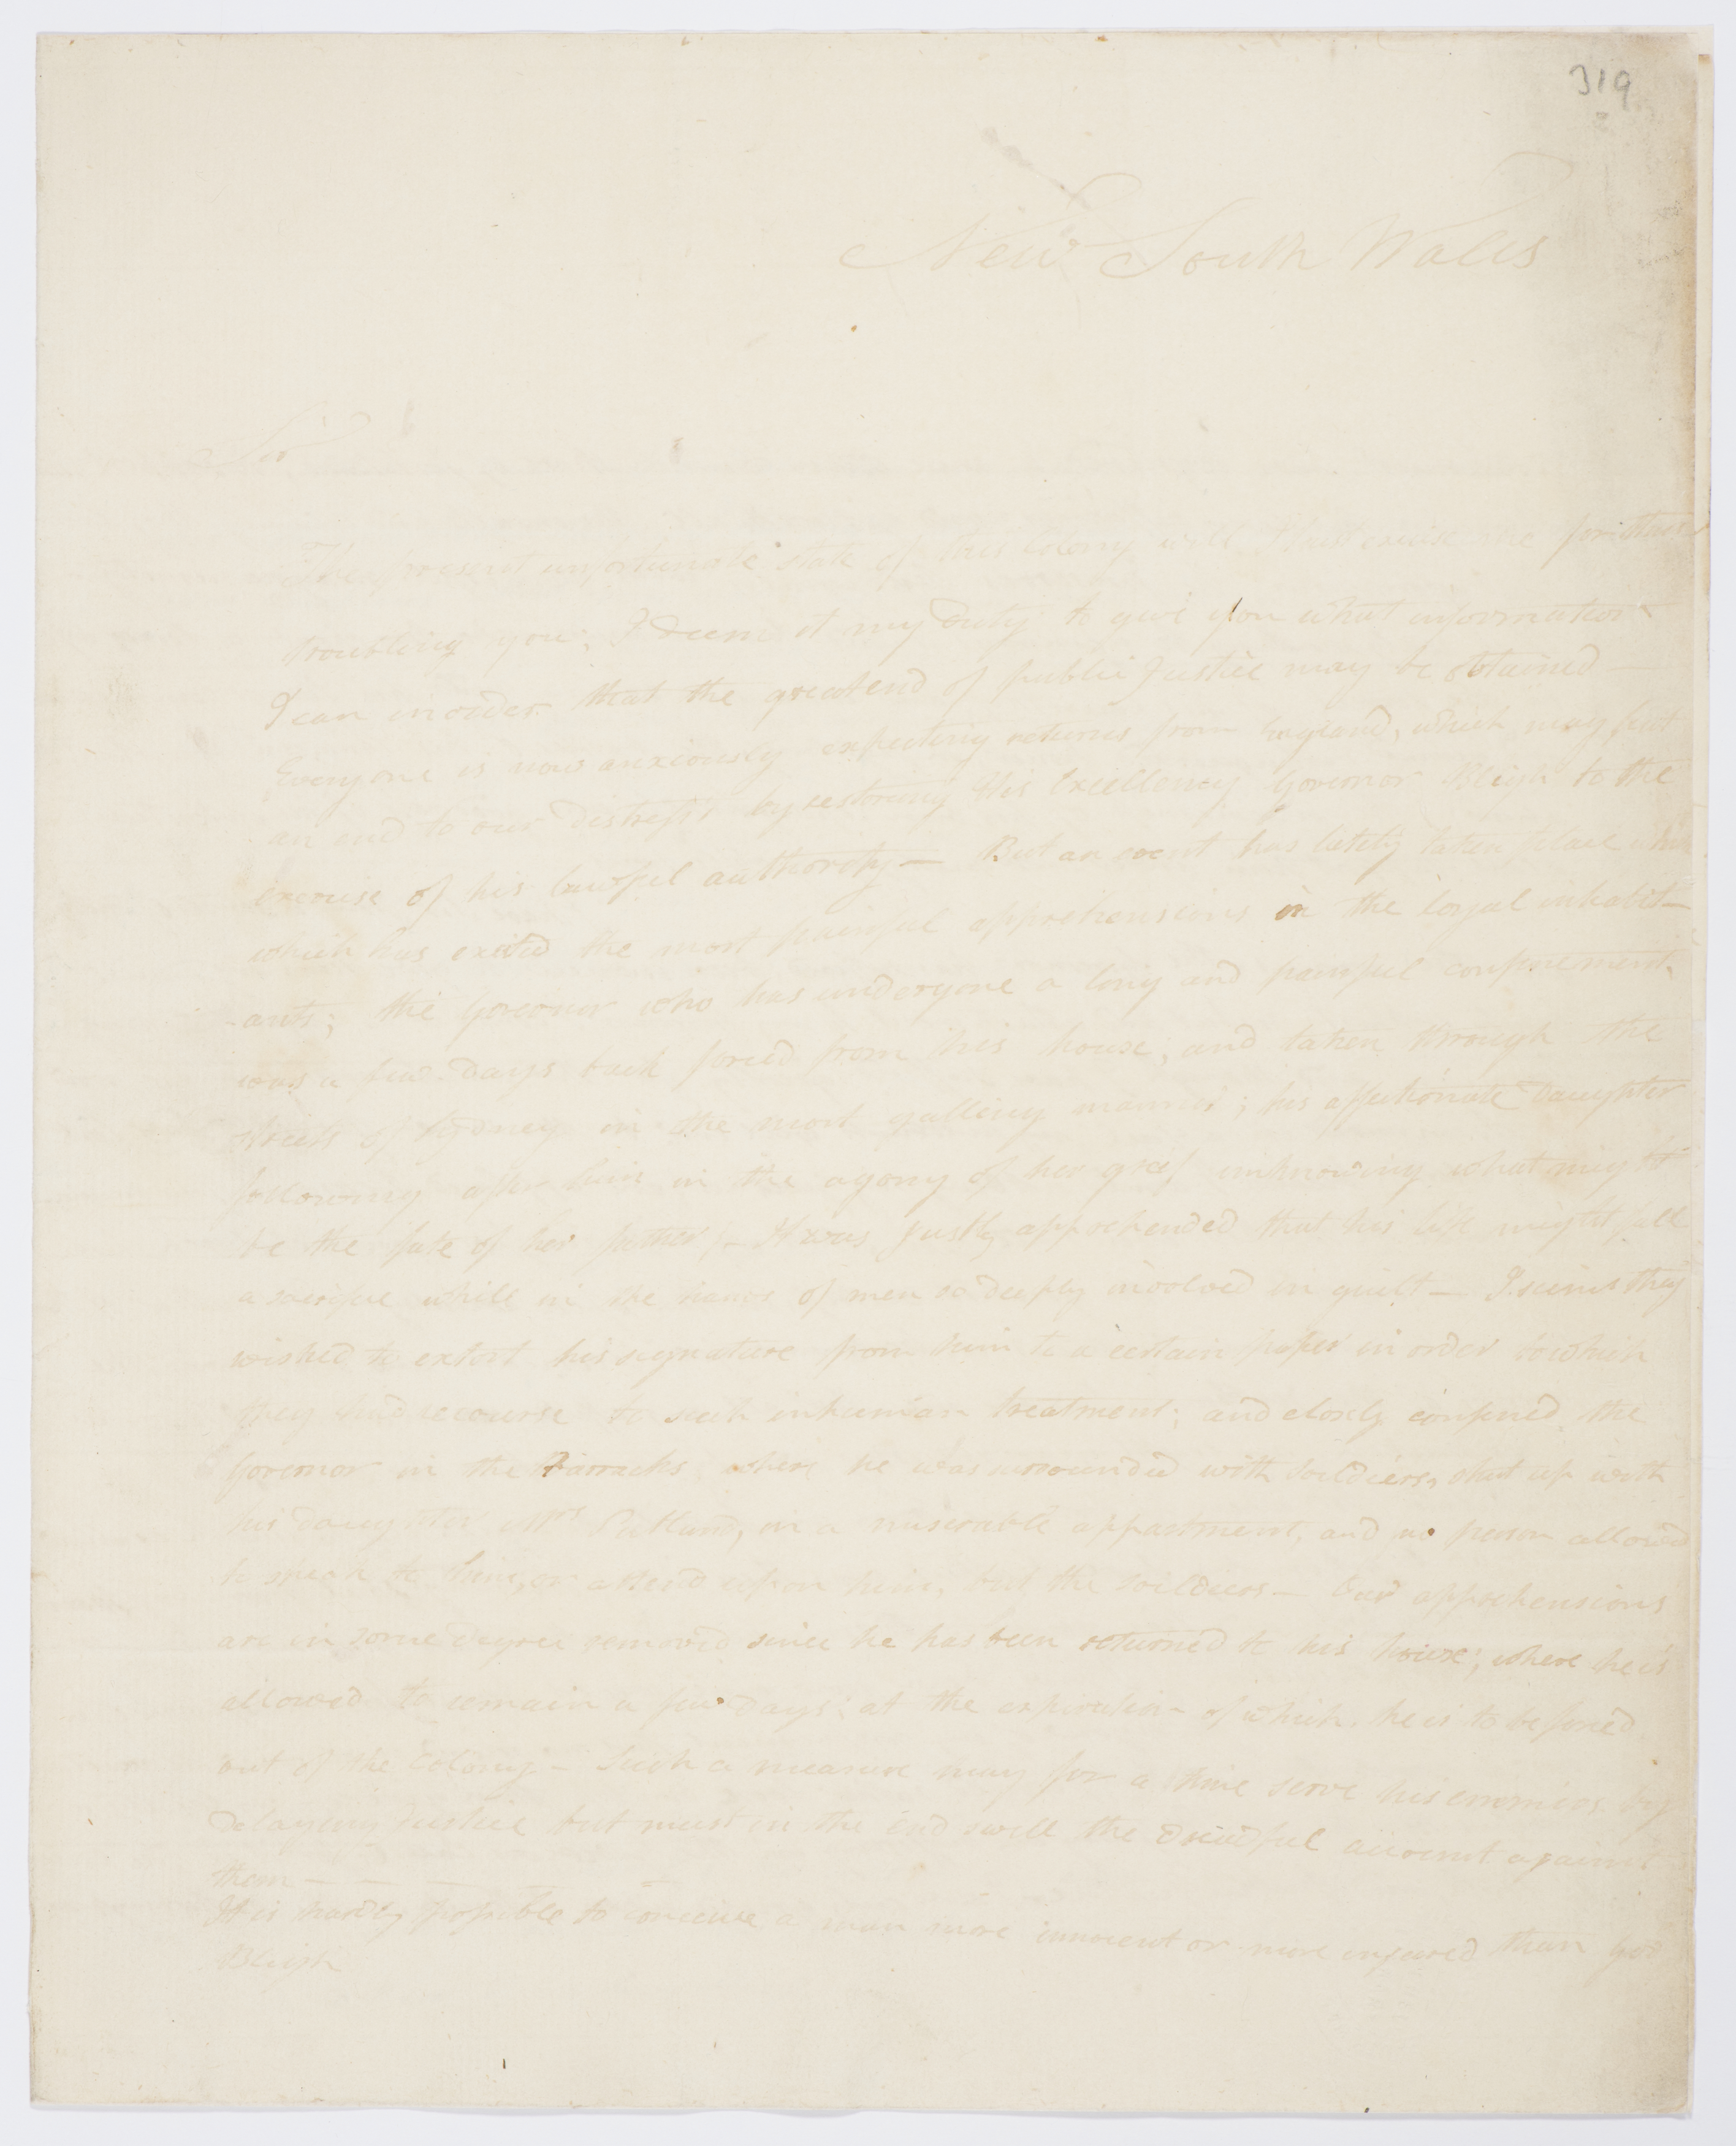 319
New South Wales
Sir
The present unfortunate state of this Colony will I trust excuse me for thus
troubling you; I deem it my Duty to give you what information
I can in order that the great end of public Justice may be obtained —
Everyone is now anxiously expecting returns from England, which may put
an end to our distress by restoring His Excellency Governor Bligh to the
exercise of his lawful authority — But an event has lately taken place
which has excited the most painful apprehensions in the loyal inhabit-
-ants; the Governor who has undergone a long and painful confinement,
was a few days back forced from his house, and taken through the
streets of Sydney in the most galling manner; his affectionate Daughter
following after him in the agony of her grief unknowing what might
be the fate of her father; — It was justly apprehended that his life might fall
a sacrifice while in the hands of men so deeply involved in guilt — I seems they
wished to extort his signature from him to a certain paper in order to which
they had recourse to such inhuman treatment; and closely confined the
Governor in the Barracks where he was surrounded with soildiers, shut up with
his daughter Mrs Putland, in a miserable appartment, and no person allowed
to speak to him, or attend upon him, but the soildiers — Our apprehensions
are in some degree removed since he has been returned to his house; where he is
allowed to remain a few days; at the expiration of which, he is to be forced
out of the Colony — Such a measure may for a time serve his enemies by
delaying Justice but must in the end swell the dreadful account against
them — — — — —
It is hardly possible to conceive a man more innocent or more injured than Gov
Bligh